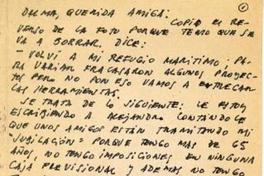 1
DALMA, QUERIDA AMIGA:
COPIO EL RE-
VERSO DE LA FOTO PORQUE TEMO QUE SE
VA A BORRAR. DICE:
- VOLVÍ A MI REFUGIO MARÍTIMO; PA-
RA VARIAR FRACASARON ALGUNOS PROYEC-
TOS PERO NO POR ESO VAMOS A ENTREGAR
LAS HERRAMIENTAS.
SE TRATA DE LO SIGUIENTE: LE ESTOY
ESCRIBIENDO A ALEJANDRO CONTÁNDOLE
QUE UNOS AMIGOS ESTÁN TRAMITANDO MI
"JUBILACIÓN" PORQUE TENGO MAS DE 65
AÑOS, NO TENGO IMPOSICIONES EN NINGUNA
CAJA PREVISIONAL Y ADEMAS NO TENGO